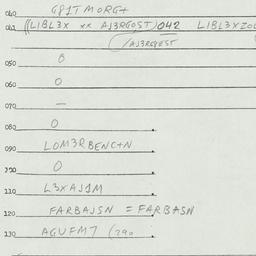 040 G81TMORG+
041 ((LIBL3X xx AJ3RGOST) 042 LIBL3XZO
(AJ3RGEST
050 0
060 0
070 —
080 0
090 LOM3RBENC+N
100 0
110 L3XAJ1M
120 FARBAJSN = FARBASN
130 AGUFM7 (290